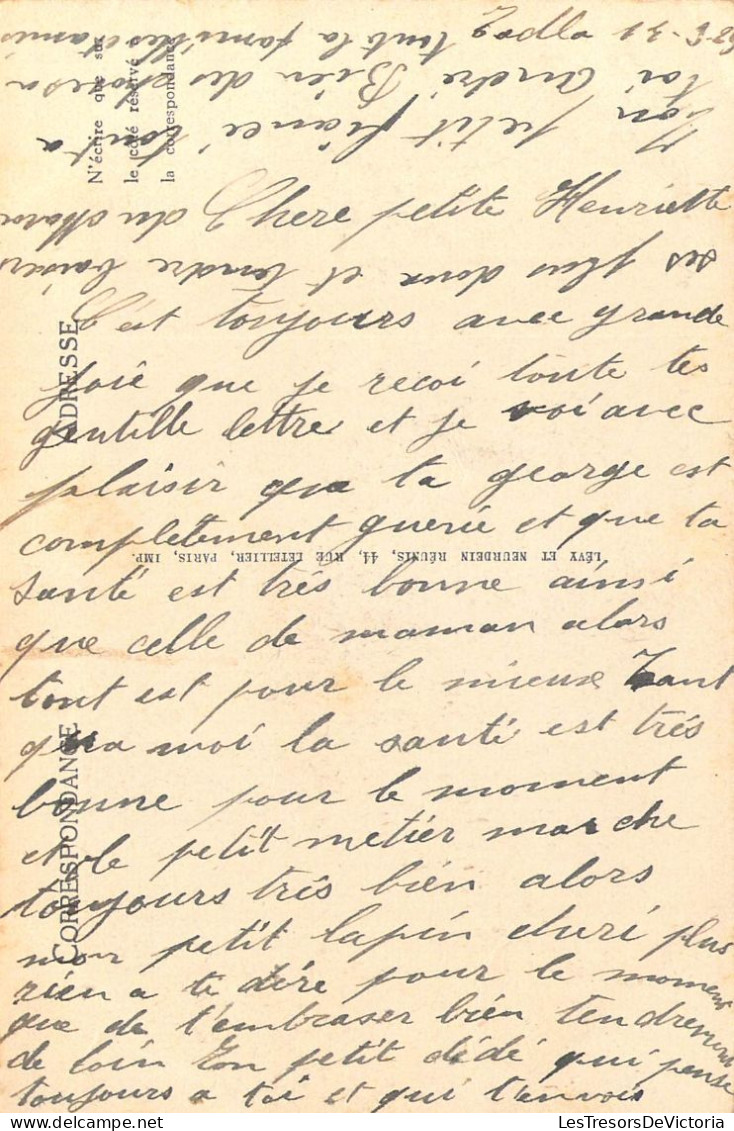 Chere petite Henriette
C'est toujours avec grande
joie que je recoi toute tes
gentille lettre et je voi avec
plaisir que ta george est
completement guerie et que ta
santé est trés bonne ainsi
que celle de maman alors
tout est pour le mieux Tant
qua moi la santé est trés
bonne pour le moment
et le petit metier marche
toujours trés bien alors
mon petit lapin cheri plus
rien a te dire pour le moment
que de t'embraser bien tendrement
de loin Ton petit dédé qui pense
toujours a toi et qui t'envois
ses plus doux et tendre baisers
Ton petit fiancé tout a
toi André Bien des choses a
toute la famille
N'écrire que sur
le côté réservé à
la correspondance
ADRESSE
CORRESPONDANCE
LÉVY ET NEURDEIN RÉUNIS, 44, RUE LETELLIER, PARIS, IMP.
LesTresorsDeVictoria.com